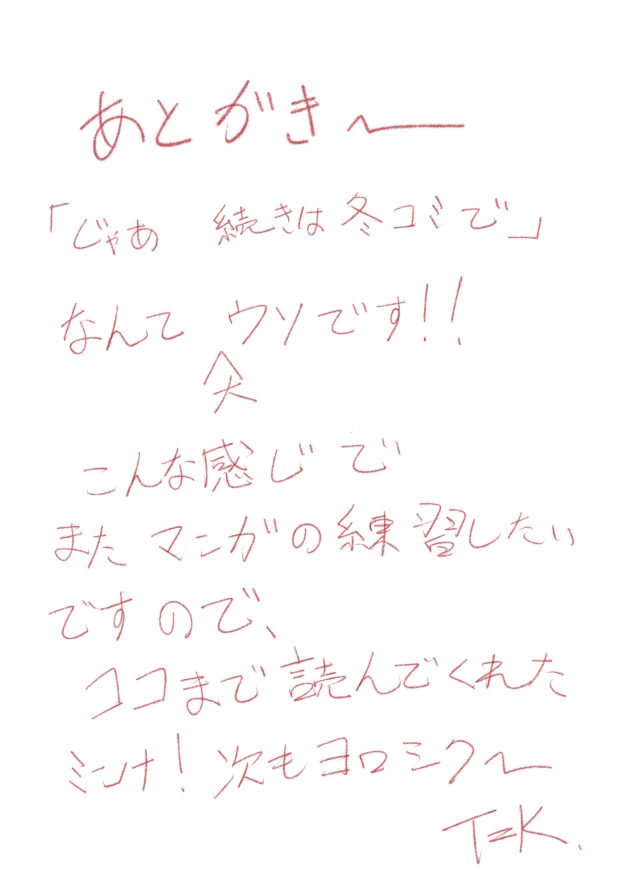 あとがき〜
「じゃあ 続きは冬コミで」
なんて ウソです!!
大
こんな感じで
また マンガの練習したい
ですので、
ココまで読んでくれた
ミンナ! 次もヨロシク〜
T=K.